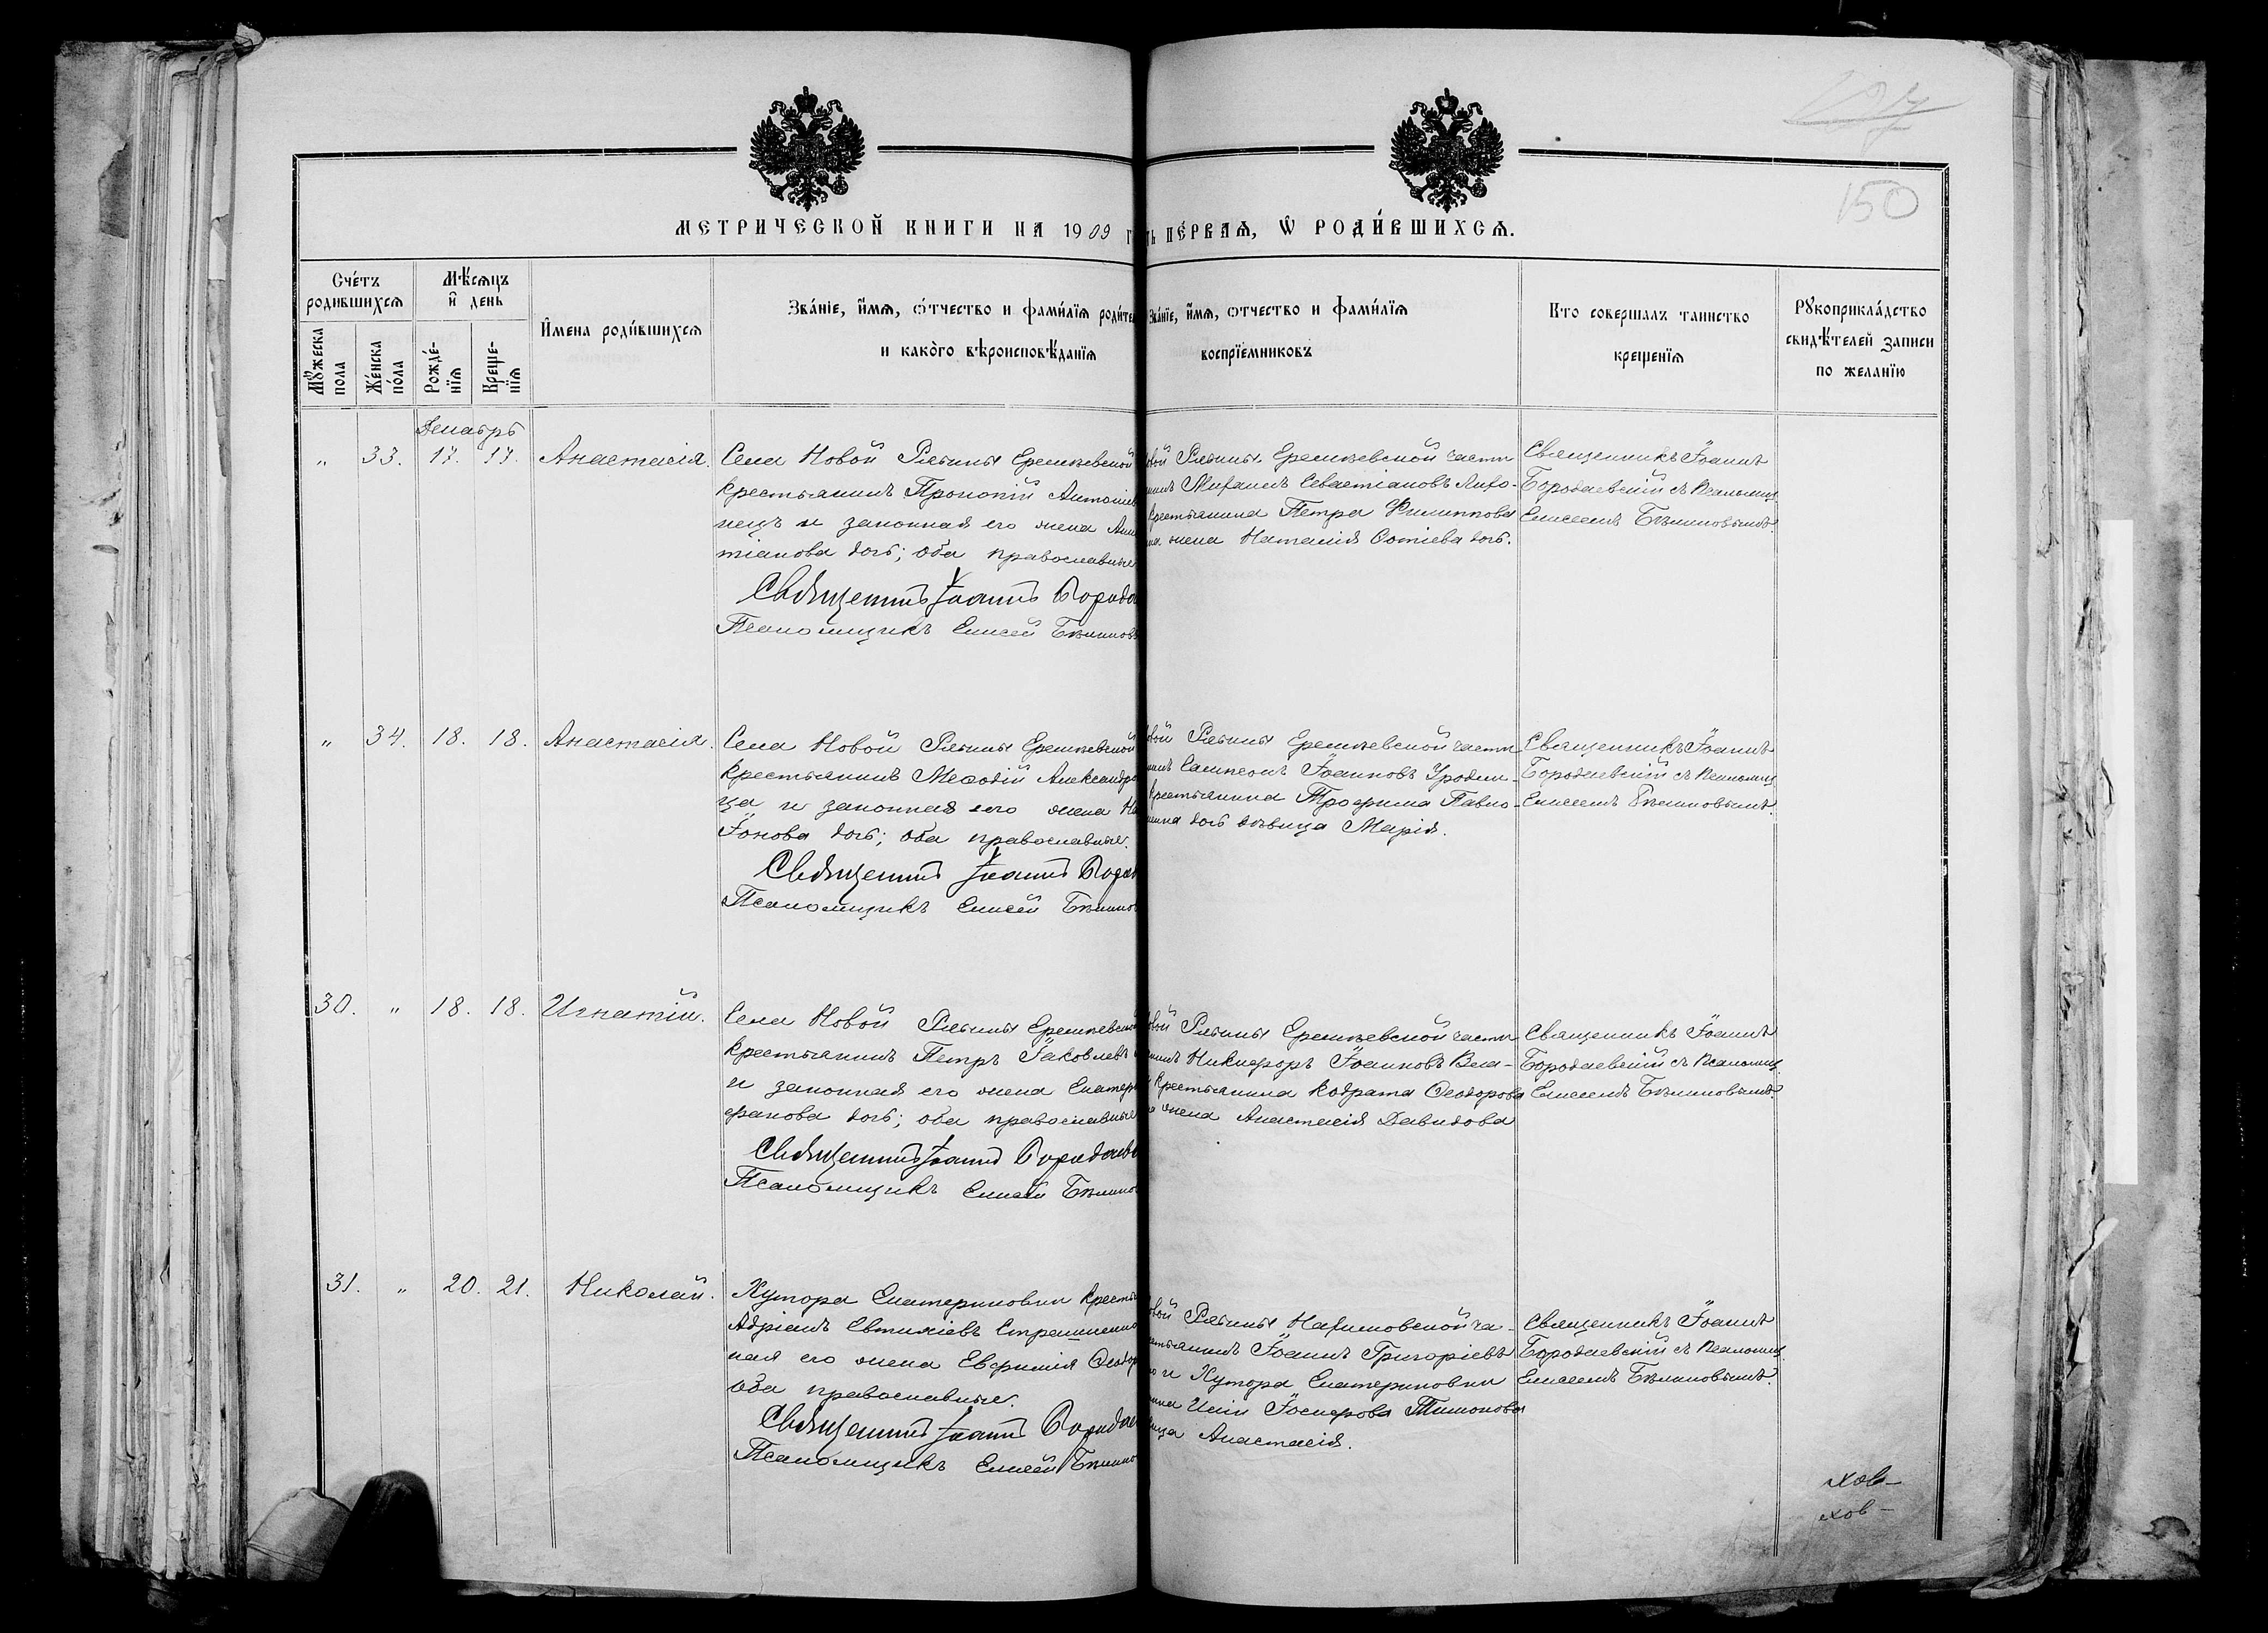 150
МЕТРИЧЕСКОЙ КНИГИ НА 1909 г
ть пе́рвая, Ѡ РОДИ́ВШИХСЯ.
Сче́тъ родившихся
Мꙋ́жеска пола
Же́нска по́ла
Мѣ́сяцъ и день
Рожде́-нїя
Креще-нїя
Имена роди́вшихся
Зва́нїе, и́мя, ѻ́тчество и фами́лїя роди́те
и како̀го вѣроисповѣ́данїя
Зва́нїе, и́мя, ѻтчество и фами́лїя
воспрїе́мниковъ
Кто совершалъ таинство
крещенїя
Рꙋкоприкла́дство
свидѣ́телей записи
по желанїю
Декабрь
„ 33. 17. 17. Анастасія.
Села Новой Рябины Ерешневской
крестьянинъ Прокопій Антоніев
нецъ и законная его жена Анн
тіанова дочь; оба православные
Священникъ Іоаннъ Борода
Псаломщикъ Елисей Бѣлиновъ
овой Рябины Ерешневской части
нинъ Михаилъ Севастіановъ Лихо-
крестьянина Петра Филиппова
жена Наталія Фотіева дочь.
Священникъ Іоаннъ
Бородаевскій съ псаломщ.
Елисеемъ Бѣлиновымъ.
„ 34. 18. 18. Анастасія.
Села Новой Рябины Ерешневской
крестьянинъ Меѳодій Александро
ца и законная его жена На
Іонова дочь; оба православные.
Священникъ Іоаннъ Бород
Псаломщикъ Елисей Бѣлинов
овой Рябины Ерешневской части
нинъ Сампсонъ Іоанновъ Уродли-
крестьянина Трофима Павло-
дочь дѣвица Марія.
Священникъ Іоаннъ
Бородаевскій съ псаломщ.
Елисеемъ Бѣлиновымъ.
30. „ 18. 18. Игнатій.
Села Новой Рябины Ерешневской
крестьянинъ Петръ Іаковлевъ
и законная его жена Екатер
фанова дочь; оба православные
Священникъ Іоаннъ Бородаев
Псаломщикъ Елисей Бѣлинов
овой Рябины Ерешневской части
нинъ Никифоръ Іоанновъ Вла-
крестьянина Кодрата Ѳеодорова
жена Анастасія Давидова
Священникъ Іоаннъ
Бородаевскій съ псаломщ.
Елисеемъ Бѣлиновымъ.
31. „ 20. 21. Николай.
Хутора Екатериновки крестья
Адріанъ Евтихіевъ
ная его жена Евфимія Ѳеодор
оба православные.
Священникъ Іоаннъ Бородае
Псаломщикъ Елисей Бѣлино
овой Рябины Нахимовской ча-
стьянинъ Іоаннъ Григоріевъ
и Хутора Екатериновки
Іосифова Тимонова
ица Анастасія.
Священникъ Іоаннъ
Бородаевскій съ псаломщ.
Елисеемъ Бѣлиновымъ.
хов-
хов-